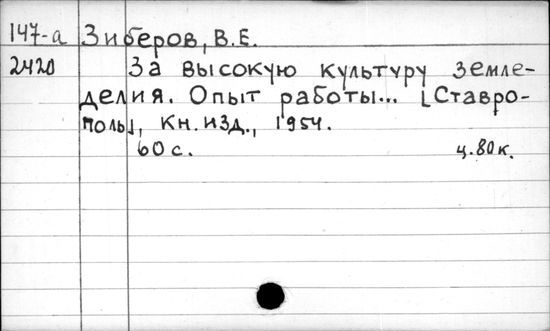 147-а Зиберов, В.Е.
2420 За высокую культуру земле-
делия. Опыт работы... [Ставро-
поль], Кн. изд., 1954.
60 с. ц. 80 к.